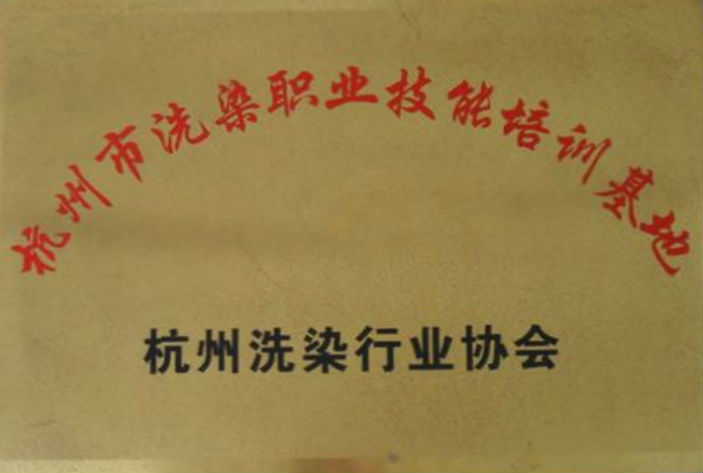 杭州市洗染职业技能培训基地
杭州洗染行业协会